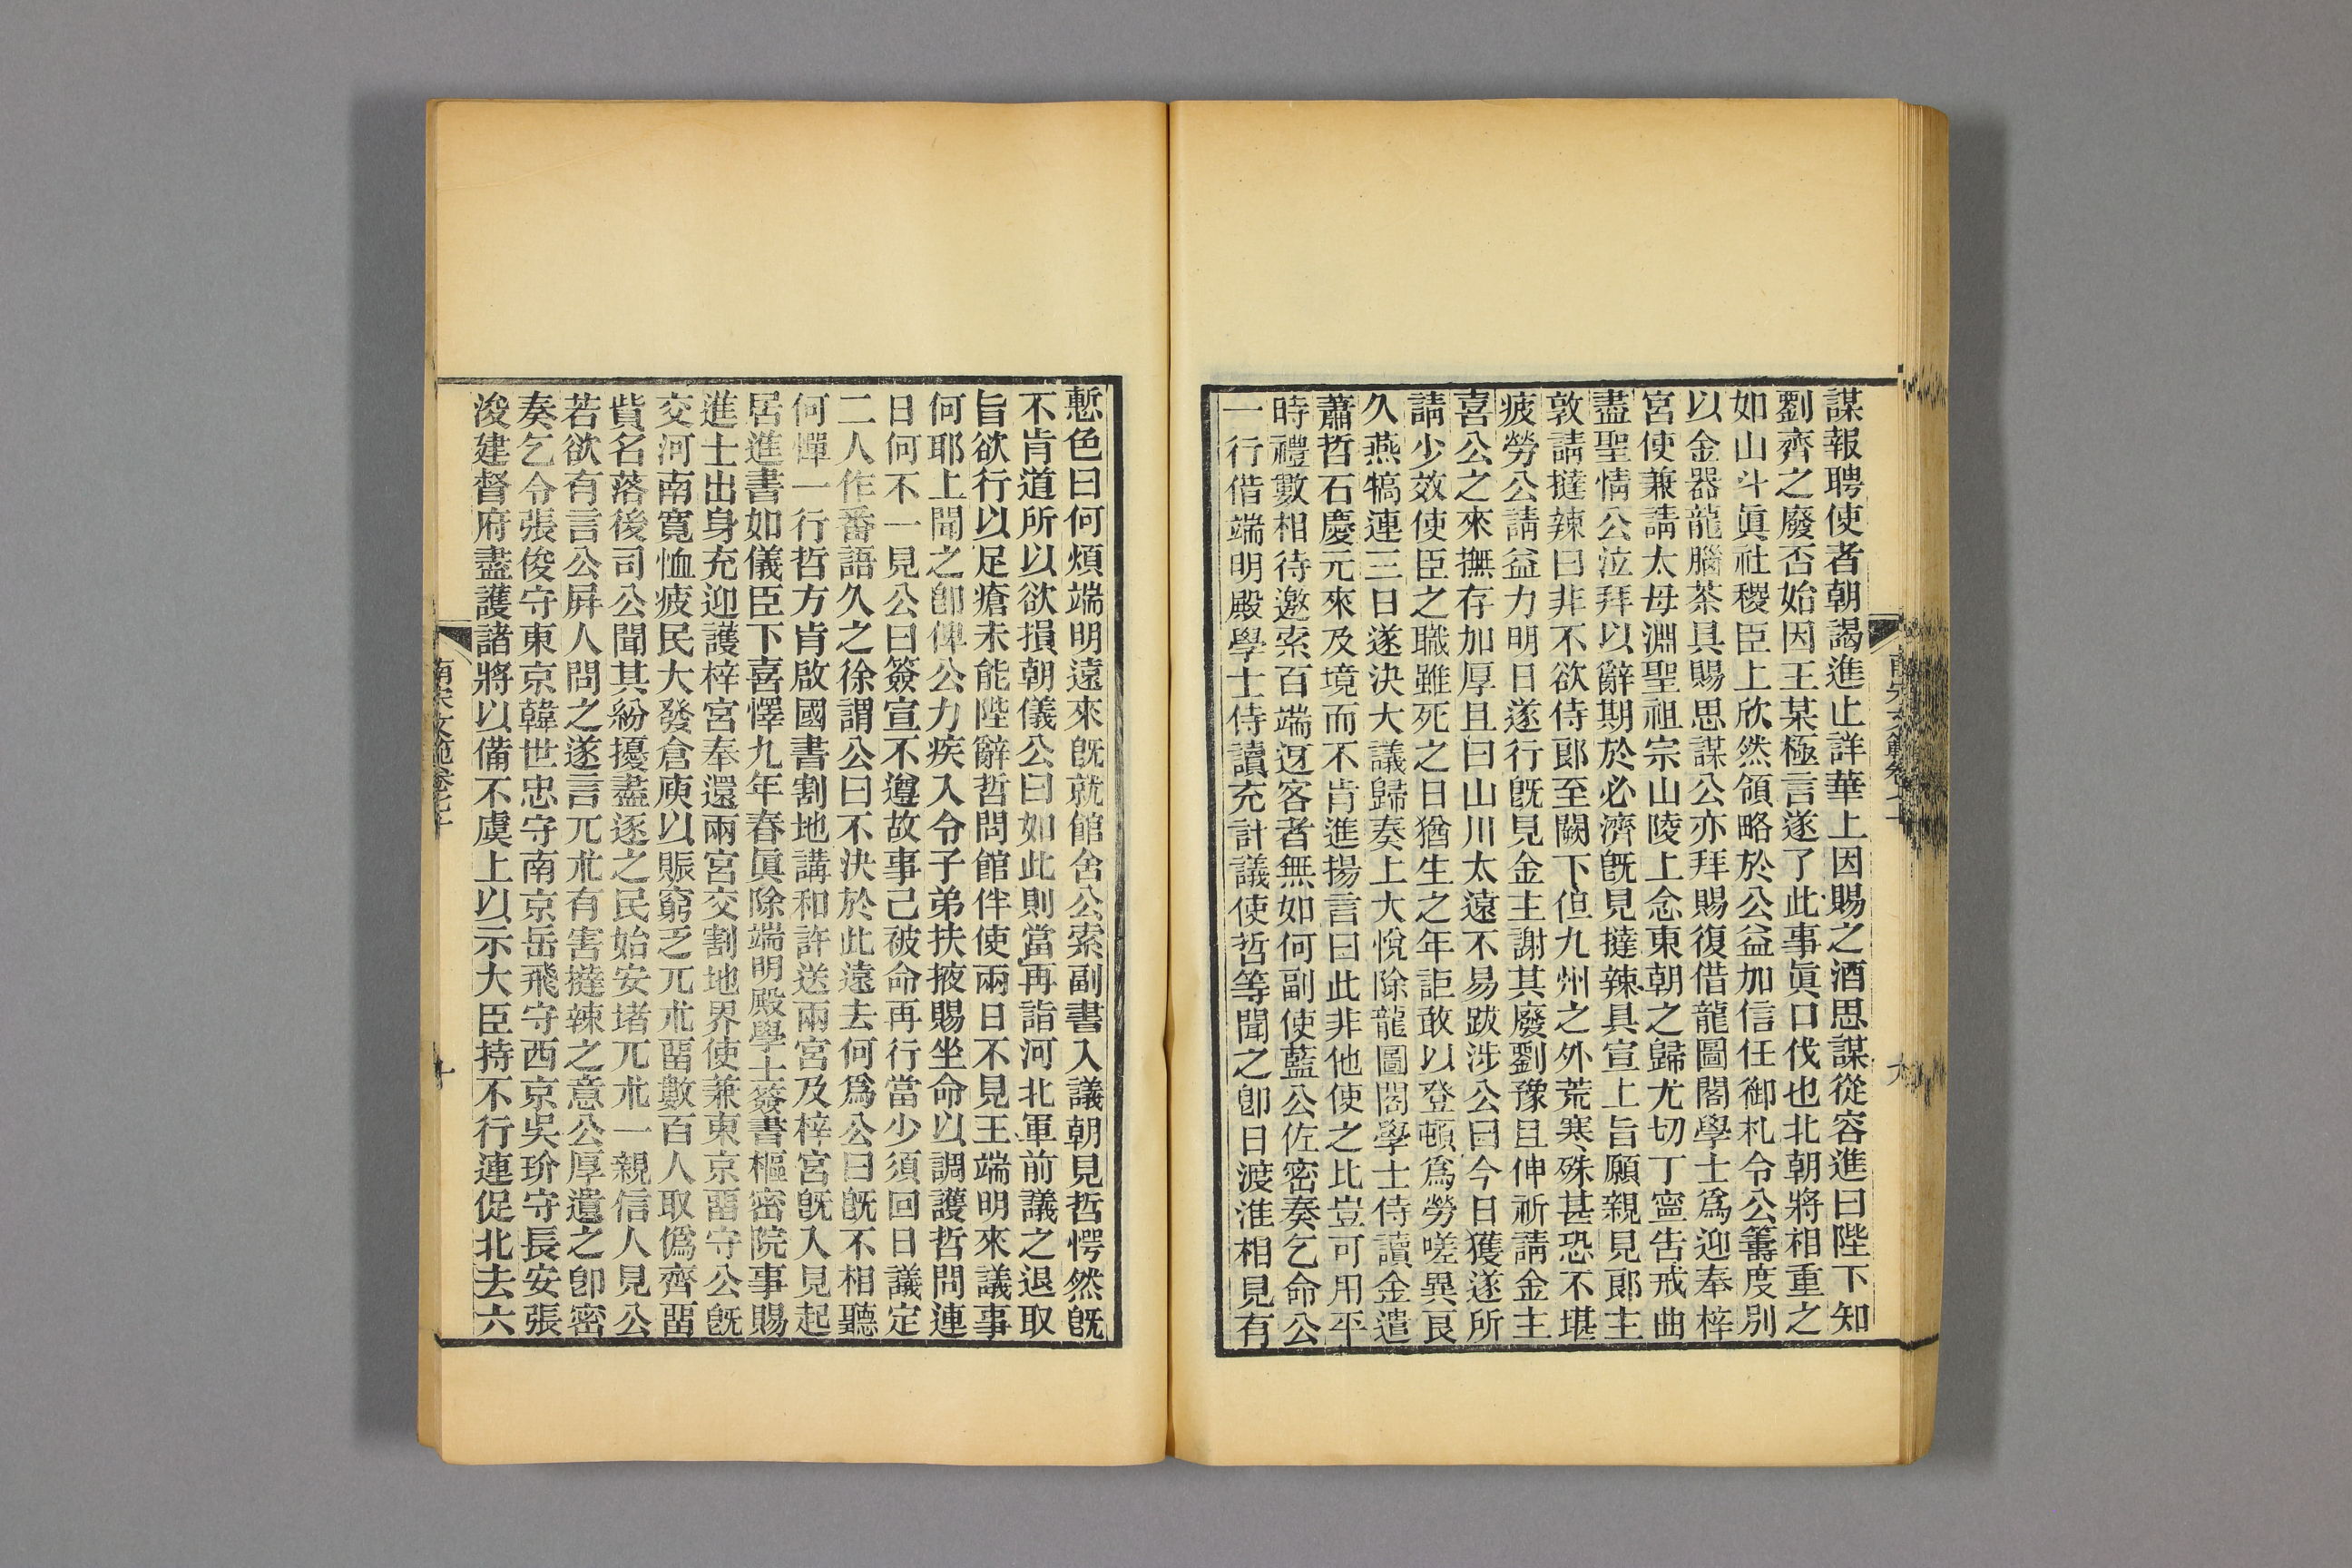 謀報聘使者朝謁進止詳華上因賜之酒思謀從容進曰陛下知
劉齊之廢否始因王某極言遂了此事眞口伐也北朝將相重之
如山斗眞社稷臣上欣然領略於公益加信任御札令公籌度別
以金器龍腦茶具賜思謀公亦拜賜復借龍圖閣學士爲迎奉梓
宮使兼請太母淵聖祖宗山陵上念東朝之歸尤切丁寧告戒曲
盡聖情公泣拜以辭期於必濟旣見撻辣具宣上旨願親見郎主
敦請撻辣曰非不欲侍郎至闕下但九州之外荒寒殊甚恐不堪
疲勞公請益力明日遂行旣見金主謝其廢劉豫且伸祈請金主
喜公之來撫存加厚且曰山川太遠不易跋涉公曰今日獲遂所
請少效使臣之職雖死之日猶生之年詎敢以登頓爲勞嗟異良
久燕犒連三日遂決大議歸奏上大悅除龍圖閣學士侍讀金遣
蕭哲石慶元來及境而不肯進揚言曰此非他使之比豈可用平
時禮數相待邀索百端迓客者無如何副使藍公佐密奏乞命公
一行借端明殿學士侍讀充計議使哲等聞之卽日渡淮相見有
慙色曰何煩端明遠來旣就館舍公索副書入議朝見哲愕然旣
不肯道所以欲損朝儀公曰如此則當再詣河北軍前議之退取
旨欲行以足瘡未能陛辭哲問館伴使兩日不見王端明來議事
何耶上聞之卽俾公力疾入令子弟扶掖賜坐命以調護哲問連
日何不一見公曰簽宣不遵故事己被命再行當少須回日議定
二人作番語久之徐謂公曰不決於此遠去何爲公曰旣不相聽
何憚一行哲方肯啟國書割地講和許送兩宮及梓宮旣入見起
居進書如儀臣下喜懌九年春眞除端明殿學士簽書樞密院事賜
進士出身充迎護梓宮奉還兩宮交割地界使兼東京畱守公旣
交河南寬恤疲民大發倉庾以賑窮乏兀朮畱數百人取僞齊畱
貲名落後司公聞其紛擾盡逐之民始安堵兀朮一親信人見公
若欲有言公屛人問之遂言兀朮有害撻辣之意公厚遺之卽密
奏乞令張俊守東京韓世忠守南京岳飛守西京吳玠守長安張
浚建督府盡護諸將以備不虞上以示大臣持不行連促北去六
南宋文範卷七十
十